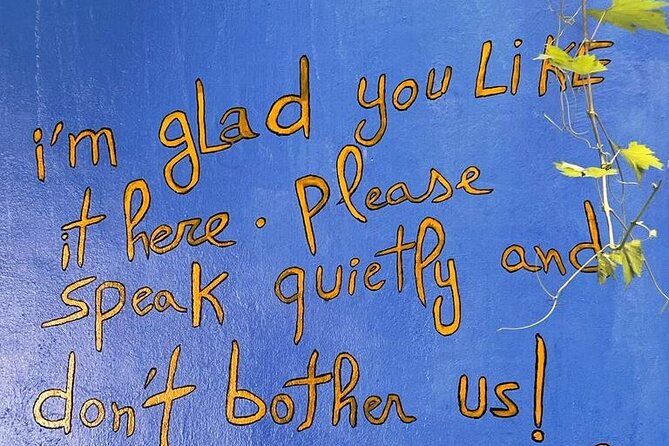 i'm glad you LiKE
it here. please
speak quietly and
don't bother us!